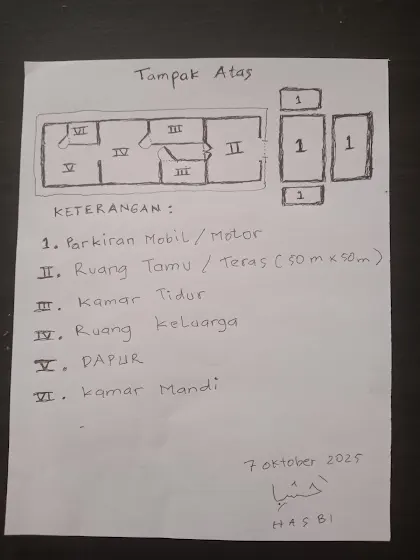 Tampak Atas
1
VI
III
IV
II
1
1
V
III
1
KETERANGAN :
1. Parkiran Mobil / Motor
II. Ruang Tamu / Teras ( 50 m x 50 m )
III. Kamar Tidur
IV. Ruang Keluarga
V. DAPUR
VI. Kamar Mandi
7 Oktober 2025
HASBI